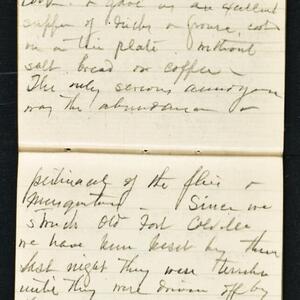 cook & gave us an excellent
supper of ducks or grouse, cooked
on a tin plate without
salt, bread or coffee –
The only serious annoyance
was the abundance &
pertinacity of the flies &
Musquitoes – Since we
struck Old Fort Colville
we have been beset by them
last night they were terrible
until they were driven off by